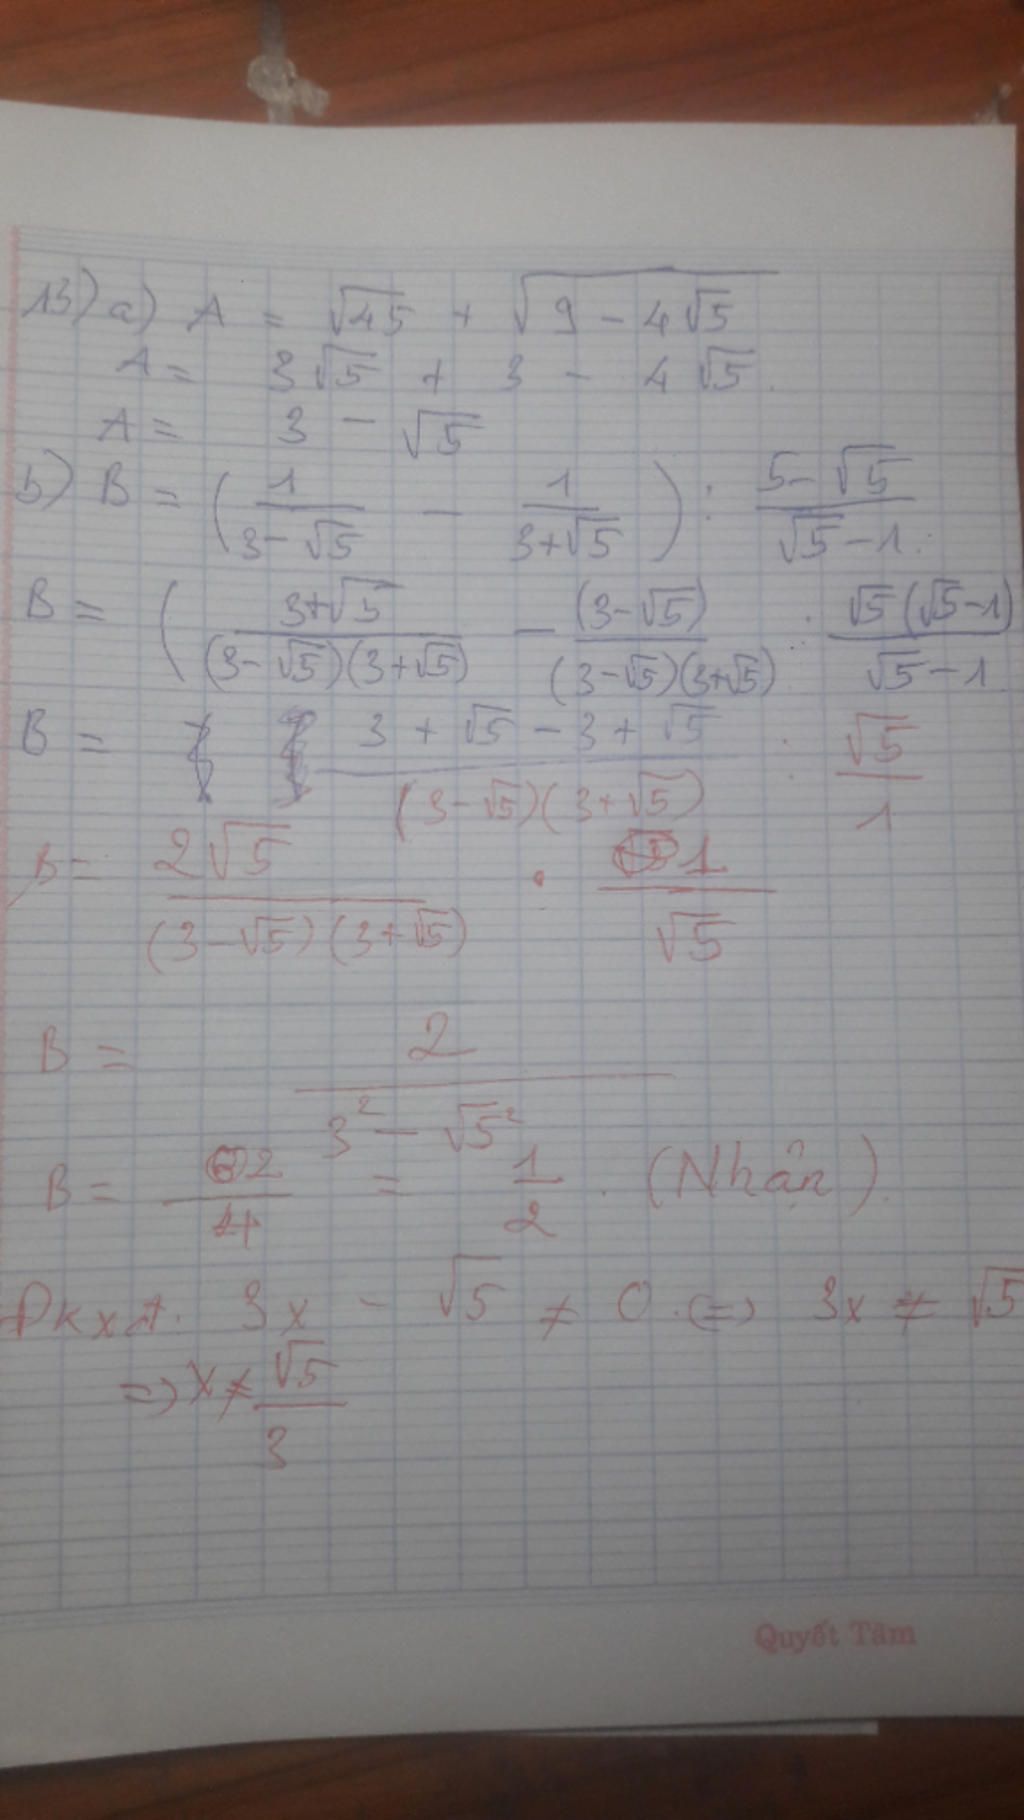 13) a) A = √45 + √(9 - 4√5)
A = 3√5 + 3 - 4√5.
A = 3 - √5
b) B = (1/(3-√5) - 1/(3+√5)) : (5-√5)/(√5-1).
B = ((3+√5)/((3-√5)(3+√5)) - (3-√5)/((3-√5)(3+√5)) : √5(√5-1)/(√5-1)
B = (3+√5-3+√5)/((3-√5)(3+√5)) : √5/1
B = 2√5/((3-√5)(3+√5)) . 1/√5
B = 2/(3²-√5²)
B = 2/4 = 1/2 . (Nhận).
ĐKXĐ. 3x - √5 ≠ 0 . (=) 3x ≠ √5
=) x ≠ √5/3
Quyết Tâm